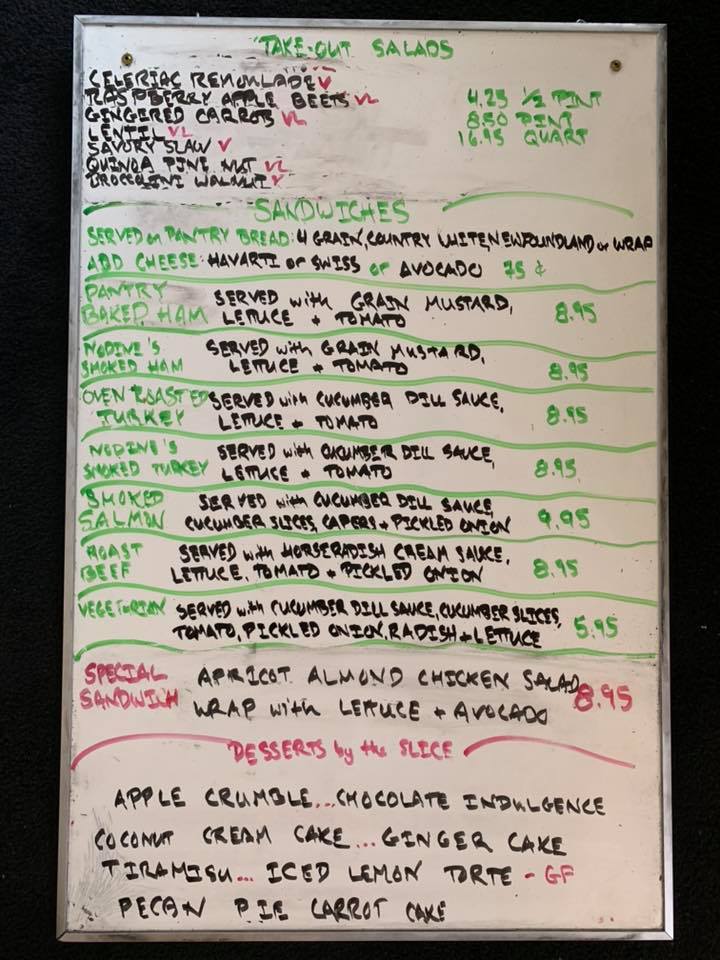 TAKE-OUT SALADS
CELERIAC REMOULADE V
RASPBERRY APPLE BEETS VL 4.25 1/2 PINT
GINGIRED CARROTS VL 8.50 PINT
LENTIL VL 16.95 QUART
SAVORY SLAW V
QUINOA PINE NUT VL
BROCCOLINI WALNUT V
SANDWICHES
SERVED on PANTRY BREAD: 4 GRAIN, COUNTRY WHITE, NEWFOUNDLAND or WRAP
ADD CHEESE: HAVARTI or SWISS or AVOCADO 75 ¢
PANTRY SERVED with GRAIN MUSTARD,
BAKED HAM LETTUCE + TOMATO 8.95
NODINE'S SERVED with GRAIN MUSTARD,
SMOKED HAM LETTUCE + TOMATO 8.95
OVEN ROASTED SERVED with CUCUMBER DILL SAUCE,
TURKEY LETTUCE + TOMATO 8.95
NODINE'S SERVED with CUCUMBER DILL SAUCE,
SMOKED TURKEY LETTUCE + TOMATO 8.95
SMOKED SERVED with CUCUMBER DILL SAUCE,
SALMON CUCUMBER SLICES, CAPERS + PICKLED ONION 9.95
ROAST SERVED with HORSERADISH CREAM SAUCE,
BEEF LETTUCE, TOMATO + PICKLED ONION 8.95
VEGETARIAN SERVED with CUCUMBER DILL SAUCE, CUCUMBER SLICES,
TOMATO, PICKLED ONION, RADISH + LETTUCE 5.95
SPECIAL APRICOT ALMOND CHICKEN SALAD
SANDWICH WRAP with LETTUCE + AVOCADO 8.95
DESSERTS by the SLICE
APPLE CRUMBLE...CHOCOLATE INDULGENCE
COCONUT CREAM CAKE...GINGER CAKE
TIRAMISU... ICED LEMON TORTE - GF
PECAN PIE CARROT CAKE